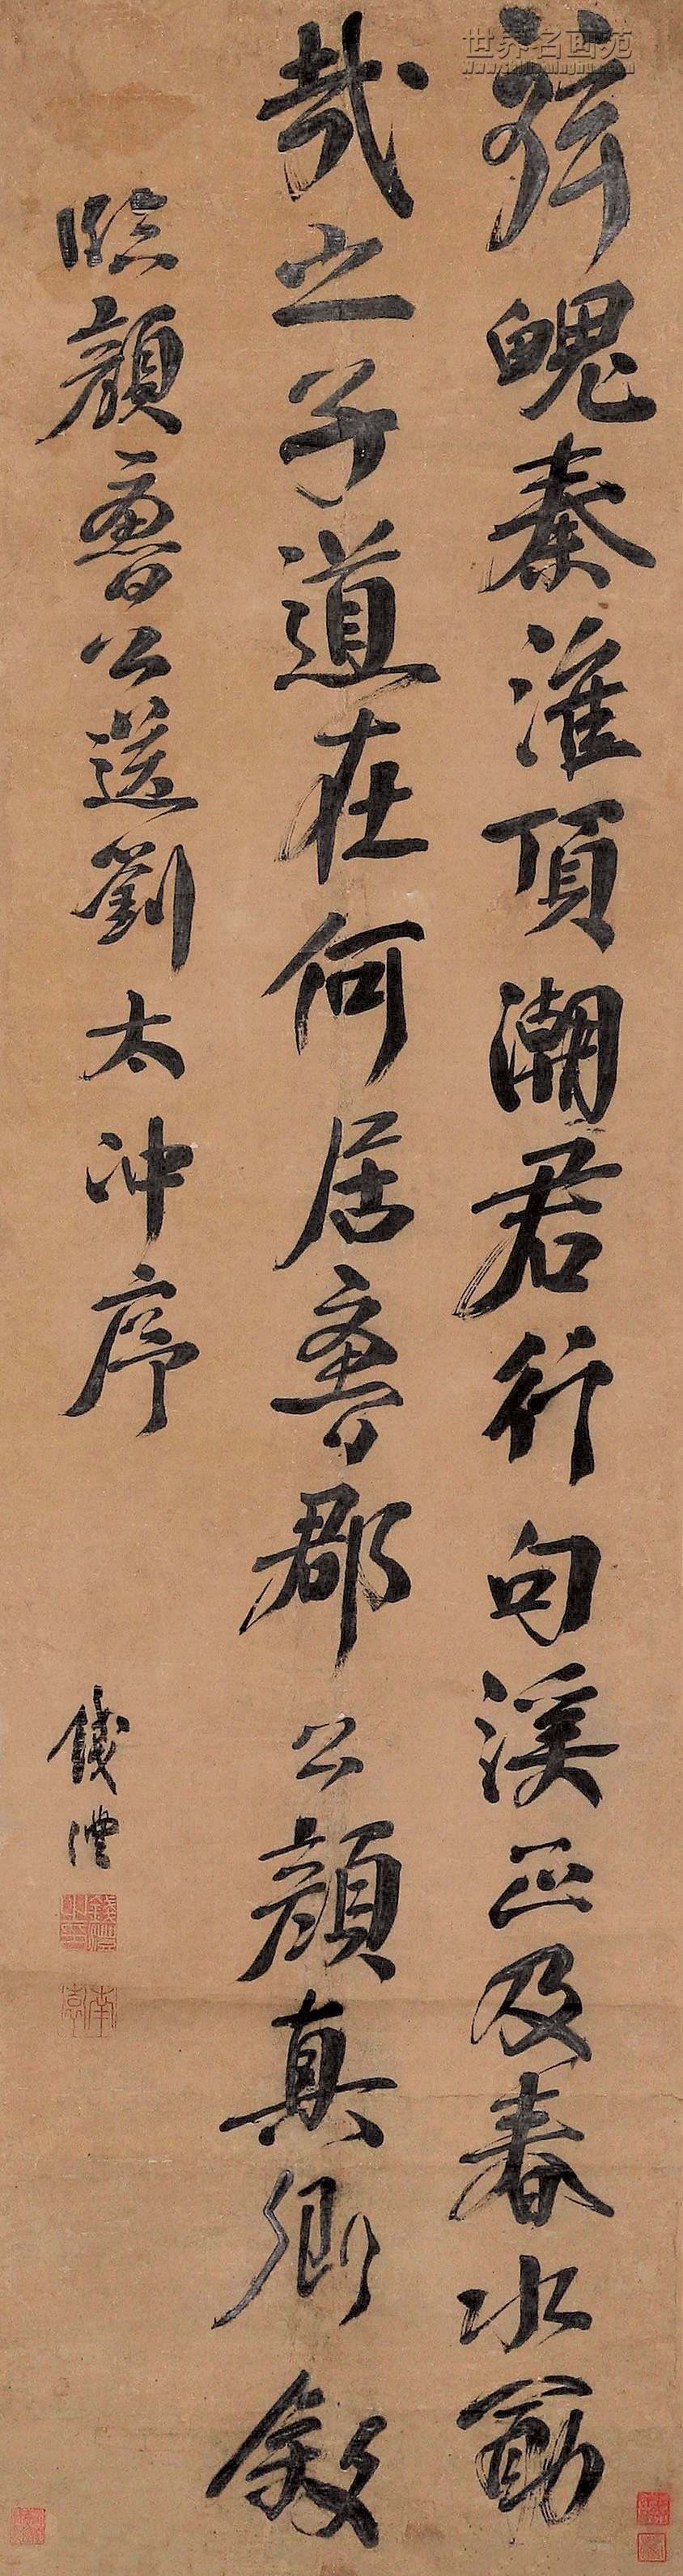 弦魄秦淮頂潮君行句溪正及春水勖
哉之子道在何居魯郡公顏真卿敘
臨顏魯公送劉太冲序
錢灃
錢灃之印
南園
世界名画苑